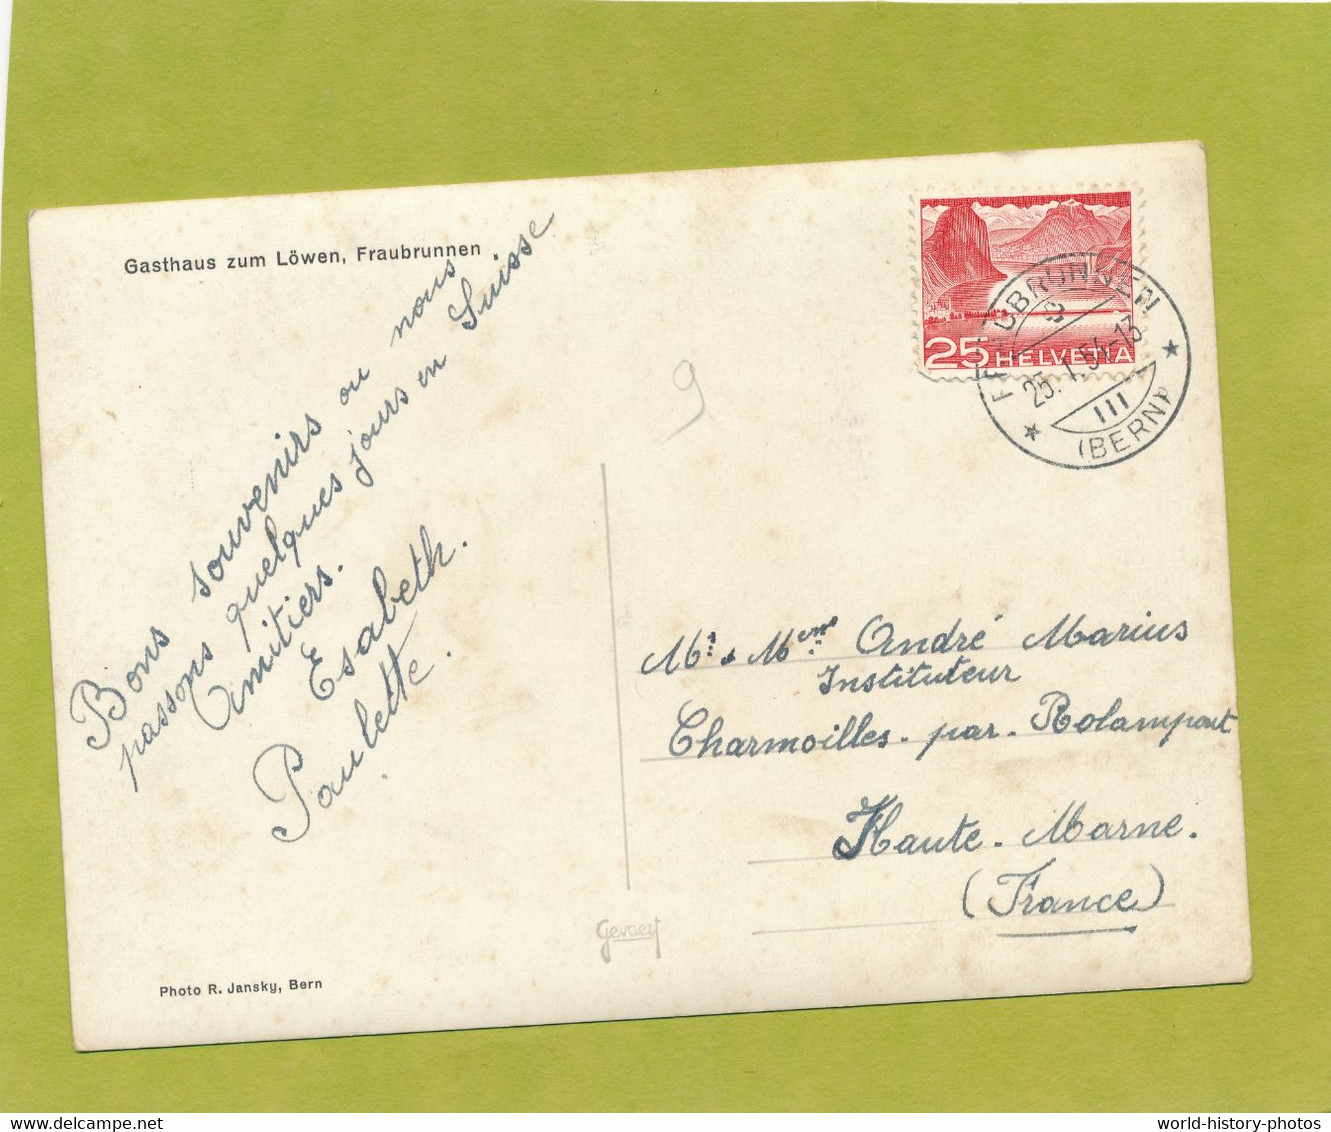 Gasthaus zum Löwen, Fraubrunnen
Bons souvenirs ou nous
passons quelques jours en Suisse
Amitiers.
Esabeth.
Paulette.
Photo R. Jansky, Bern
Gevaert
9
25 HELVETIA
FRAUBRUNNEN
25. I. 54-13
III
(BERN)
Mr. & Mme André Marius
Instituteur
Charmoilles. par. Rolampont
Haute. Marne.
(France)
delcampe.net
world-history-photos